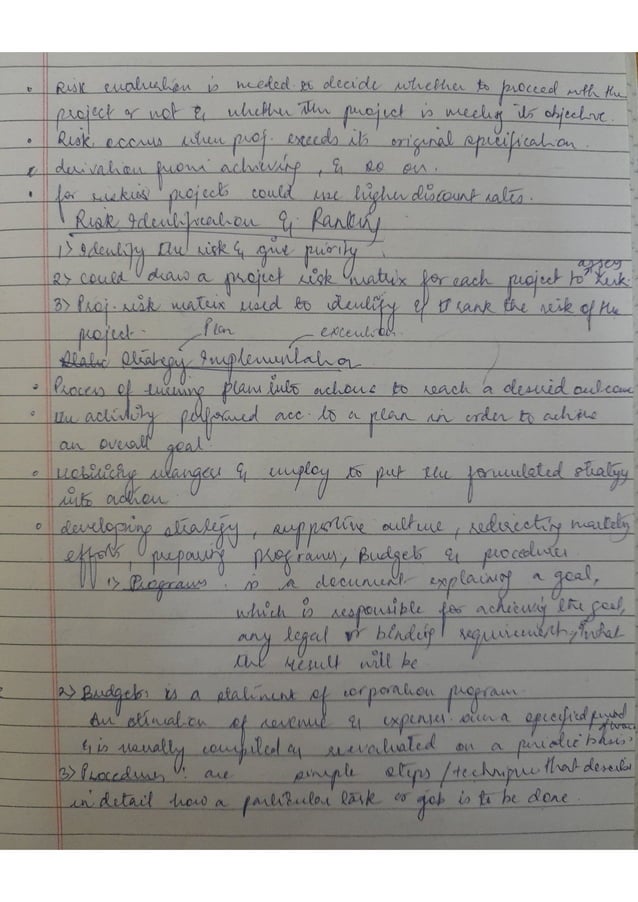 • Risk evaluation is needed to decide whether to proceed with the
project or not & whether the project is meeting its objective.
• Risk occurs when proj. exceeds its original specification.
• derivation from achieving, & so on.
• for riskier projects could use higher discount rates.
Risk Identification & Ranking
1> Identify the risk & give priority
2> could draw a project risk matrix for each project to assess risk.
3> Proj. risk matrix used to identify & to rank the risk of the
project.
Plan execution
Strategy Implementation
• Process of turning plans into actions to reach a desired outcome
• the activity performed acc. to a plan in order to achieve
an overall goal.
• mobilizing managers & employ to put the formulated strategy
into action.
• developing strategy, supportive culture, redirecting marketing
efforts, preparing programs, Budgets & procedures
1> Programs: is a document explaining a goal,
which is responsible for achieving the goal,
any legal or binding requirements, & what
the result will be
2> Budgets is a statement of corporation program.
An estimation of revenue & expenses over a specified period
of time
& is usually compiled & reevaluated on a periodic basis.
3> Procedures: are simple steps/technique that describe
in detail how a particular task or job is to be done.